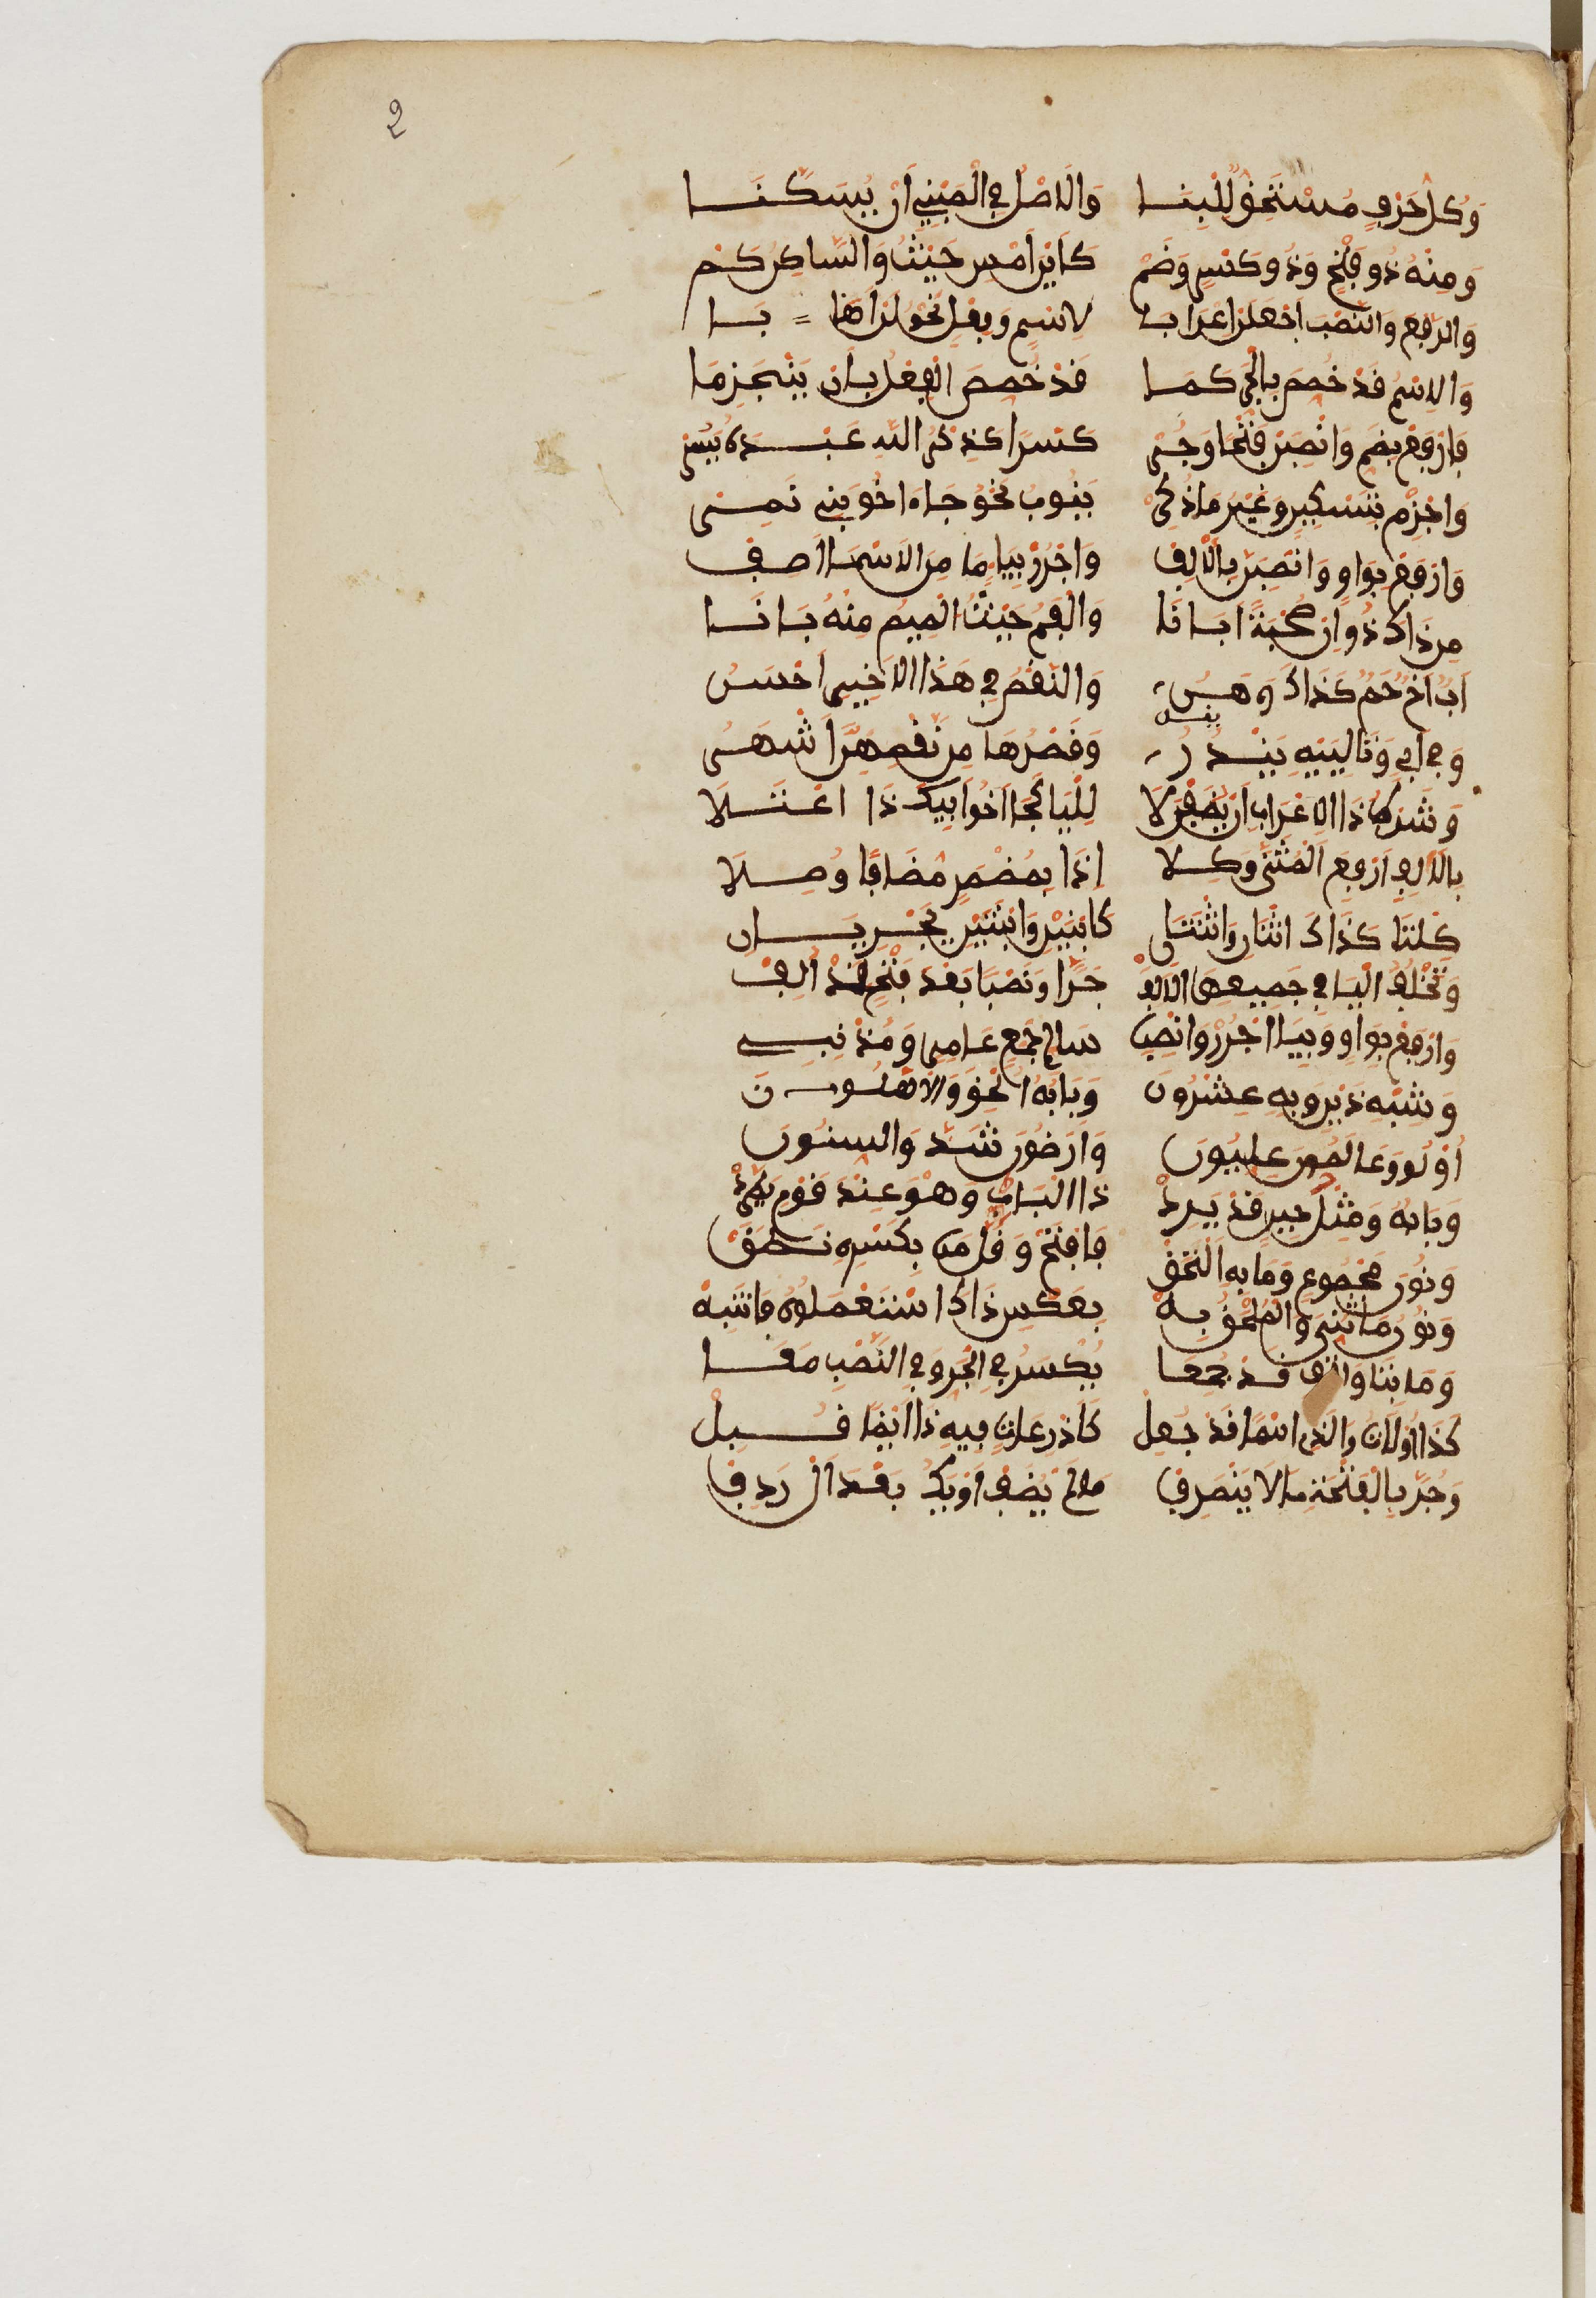 2
وَكُلُّ حَرْفٍ مُسْتَحِقٌّ لِلْبِنَا وَالَاصْلُ فِي الْمَبْنِيِّ أَنْ يُسَكَّنَا
وَمِنْهُ ذُو فَتْحٍ وَذُو كَسْرٍ وَضَمّ كَأَيْنَ أَمْسِ حَيْثُ وَالسَّاكِنُ كَمْ
وَالرَّفْعَ وَالنَّصْبَ اجْعَلَنْ إعْرَابَا لِاسْمٍ وَفِعْلٍ نَحْوُ لَنْ أَهَابَا
وَالِاسْمُ قَدْ خُصِّصَ بِالْجَرِّ كَمَا قَدْ خُصِّصَ الْفِعْلُ بِأَنْ يَنْجَزِمَا
فَارْفَعْ بِضَمٍّ وَانْصِبَنْ فَتْحًا وَجُرّ كَسْرًا كَذِكْرُ اللهِ عَبْدَهُ يَسُرّ
وَاجْزِمْ بِتَسْكِينٍ وَغَيْرُ مَا ذُكِرْ يَنُوبُ نَحْوُ جَاءَ أَخُو بَنِي نَمِرْ
وَارْفَعْ بِوَاوٍ وَانْصِبَنَّ بِالَالِفْ وَاجْرُرْ بِيَاءٍ مَا مِنَ الَاسْمَا أَصِفْ
مِنْ ذَاكَ ذُو إِنْ صُحْبَةً أَبَانَا وَالْفَمُ حَيْثُ الْمِيمُ مِنْهُ بَانَا
أَبٌ أَخٌ حَمٌ كَذَاكَ وَهَنُ وَالنَّقْصُ فِي هَذَا الَاخِيرِ أَحْسَنُ
وَفِي أَبٍ وَتَالِيَيْهِ يَنْدُرُ وَقَصْرُهَا مِنْ نَقْصِهِنَّ أَشْهَرُ
وَشَرْطُ ذَا الِاعْرَابِ أَنْ يُضَفْنَ لَا لِلْيَا كَجَا أَخُو أَبِيكَ ذَا اعْتِلَا
بِالَالِفِ ارْفَعِ الْمُثَنَّى وَكِلَا إِذَا بِمُضْمَرٍ مُضَافًا وُصِلَا
كِلْتَا كَذَاكَ اثْنَانِ وَاثْنَتَانِ كَابْنَيْنِ وَابْنَتَيْنِ يَجْرِيَانِ
وَتَخْلُفُ الْيَا فِي جَمِيعِهَا الَالِفْ جَرًّا وَنَصْبًا بَعْدَ فَتْحٍ قَدْ أُلِفْ
وَارْفَعْ بِوَاوٍ وَبِيَا اجْرُرْ وَانْصِبِ سَالِمَ جَمْعِ عَامِرٍ وَمُذْنِبِ
وَشِبْهِ ذَيْنِ وَبِهِ عِشْرُونَ وَبَابُهُ أُلْحِقَ وَالَاهْلُونَ
أُوْلُو وَعَالَمُونَ عِلِّيُّونَ وَأَرَضُونَ شَذَّ وَالسِّنُونَ
وَبَابُهُ وَمِثْلَ حِينٍ قَدْ يَرِدْ ذَا الْبَابُ وَهْوَ عِنْدَ قَوْمٍ يَطَّرِدْ
وَنُونَ مَجْمُوعٍ وَمَا بِهِ الْتَحَقْ فَافْتَحْ وَقَلَّ مَنْ بِكَسْرِهِ نَطَقْ
وَنُونُ مَا ثُنِّيَ وَالْمُلْحَقِ بِهْ بِعَكْسِ ذَاكَ اسْتَعْمَلُوهُ فَانْتَبِهْ
وَمَا بِتَا وَأَلِفٍ قَدْ جُمِعَا يُكْسَرُ فِي الْجَرِّ وَفِي النَّصْبِ مَعَا
كَذَا أُولَاتُ وَالَّذِي اسْمًا قَدْ جُعِلْ كَأَذْرِعَاتٍ فِيهِ ذَا أَيْضًا قُبِلْ
وَجُرَّ بِالْفَتْحَةِ مَا لَا يَنْصَرِفْ مَا لَمْ يُضَفْ أَوْ يَكُ بَعْدَ أَلْ رَدِفْ